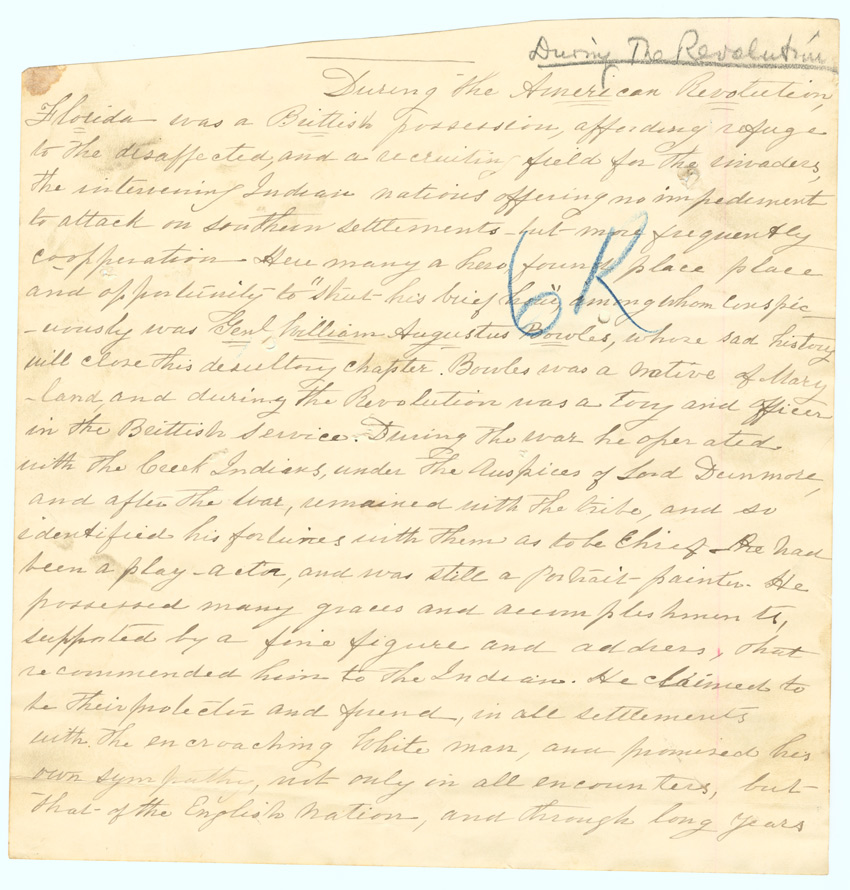 During The Revolution
During the American Revolution,
Florida was a Brittish possession, affording refuge
to the disaffected, and a recruiting field for the invaders,
the intervening Indian nations offering no impediment
to attack on southern settlements - but more frequently
coopperation - Here many a hero found place place
and opportunity to "strut his brief hour", among whom conspic
-uously was Genl William Augustus Bowles, whose sad history
will close this desultory chapter. Bowles was a native of Mary
-land and during the Revolution was a tory and officer
in the Brittish service. During the war he operated
with the Creek Indians, under the Auspices of Lord Dunmore,
and after the war, remained with the tribe, and so
identified his fortunes with them as to be Chief - He had
been a play-actor, and was still a portrait-painter. He
possessed many graces and accomplishments,
supported by a fine figure and address, that
recommended him to the Indian. He claimed to
be their protector and friend, in all settlements
with the encroaching White man, and promised his
own sympathy, not only in all encounters, but
that of the English Nation, and through long years
6R